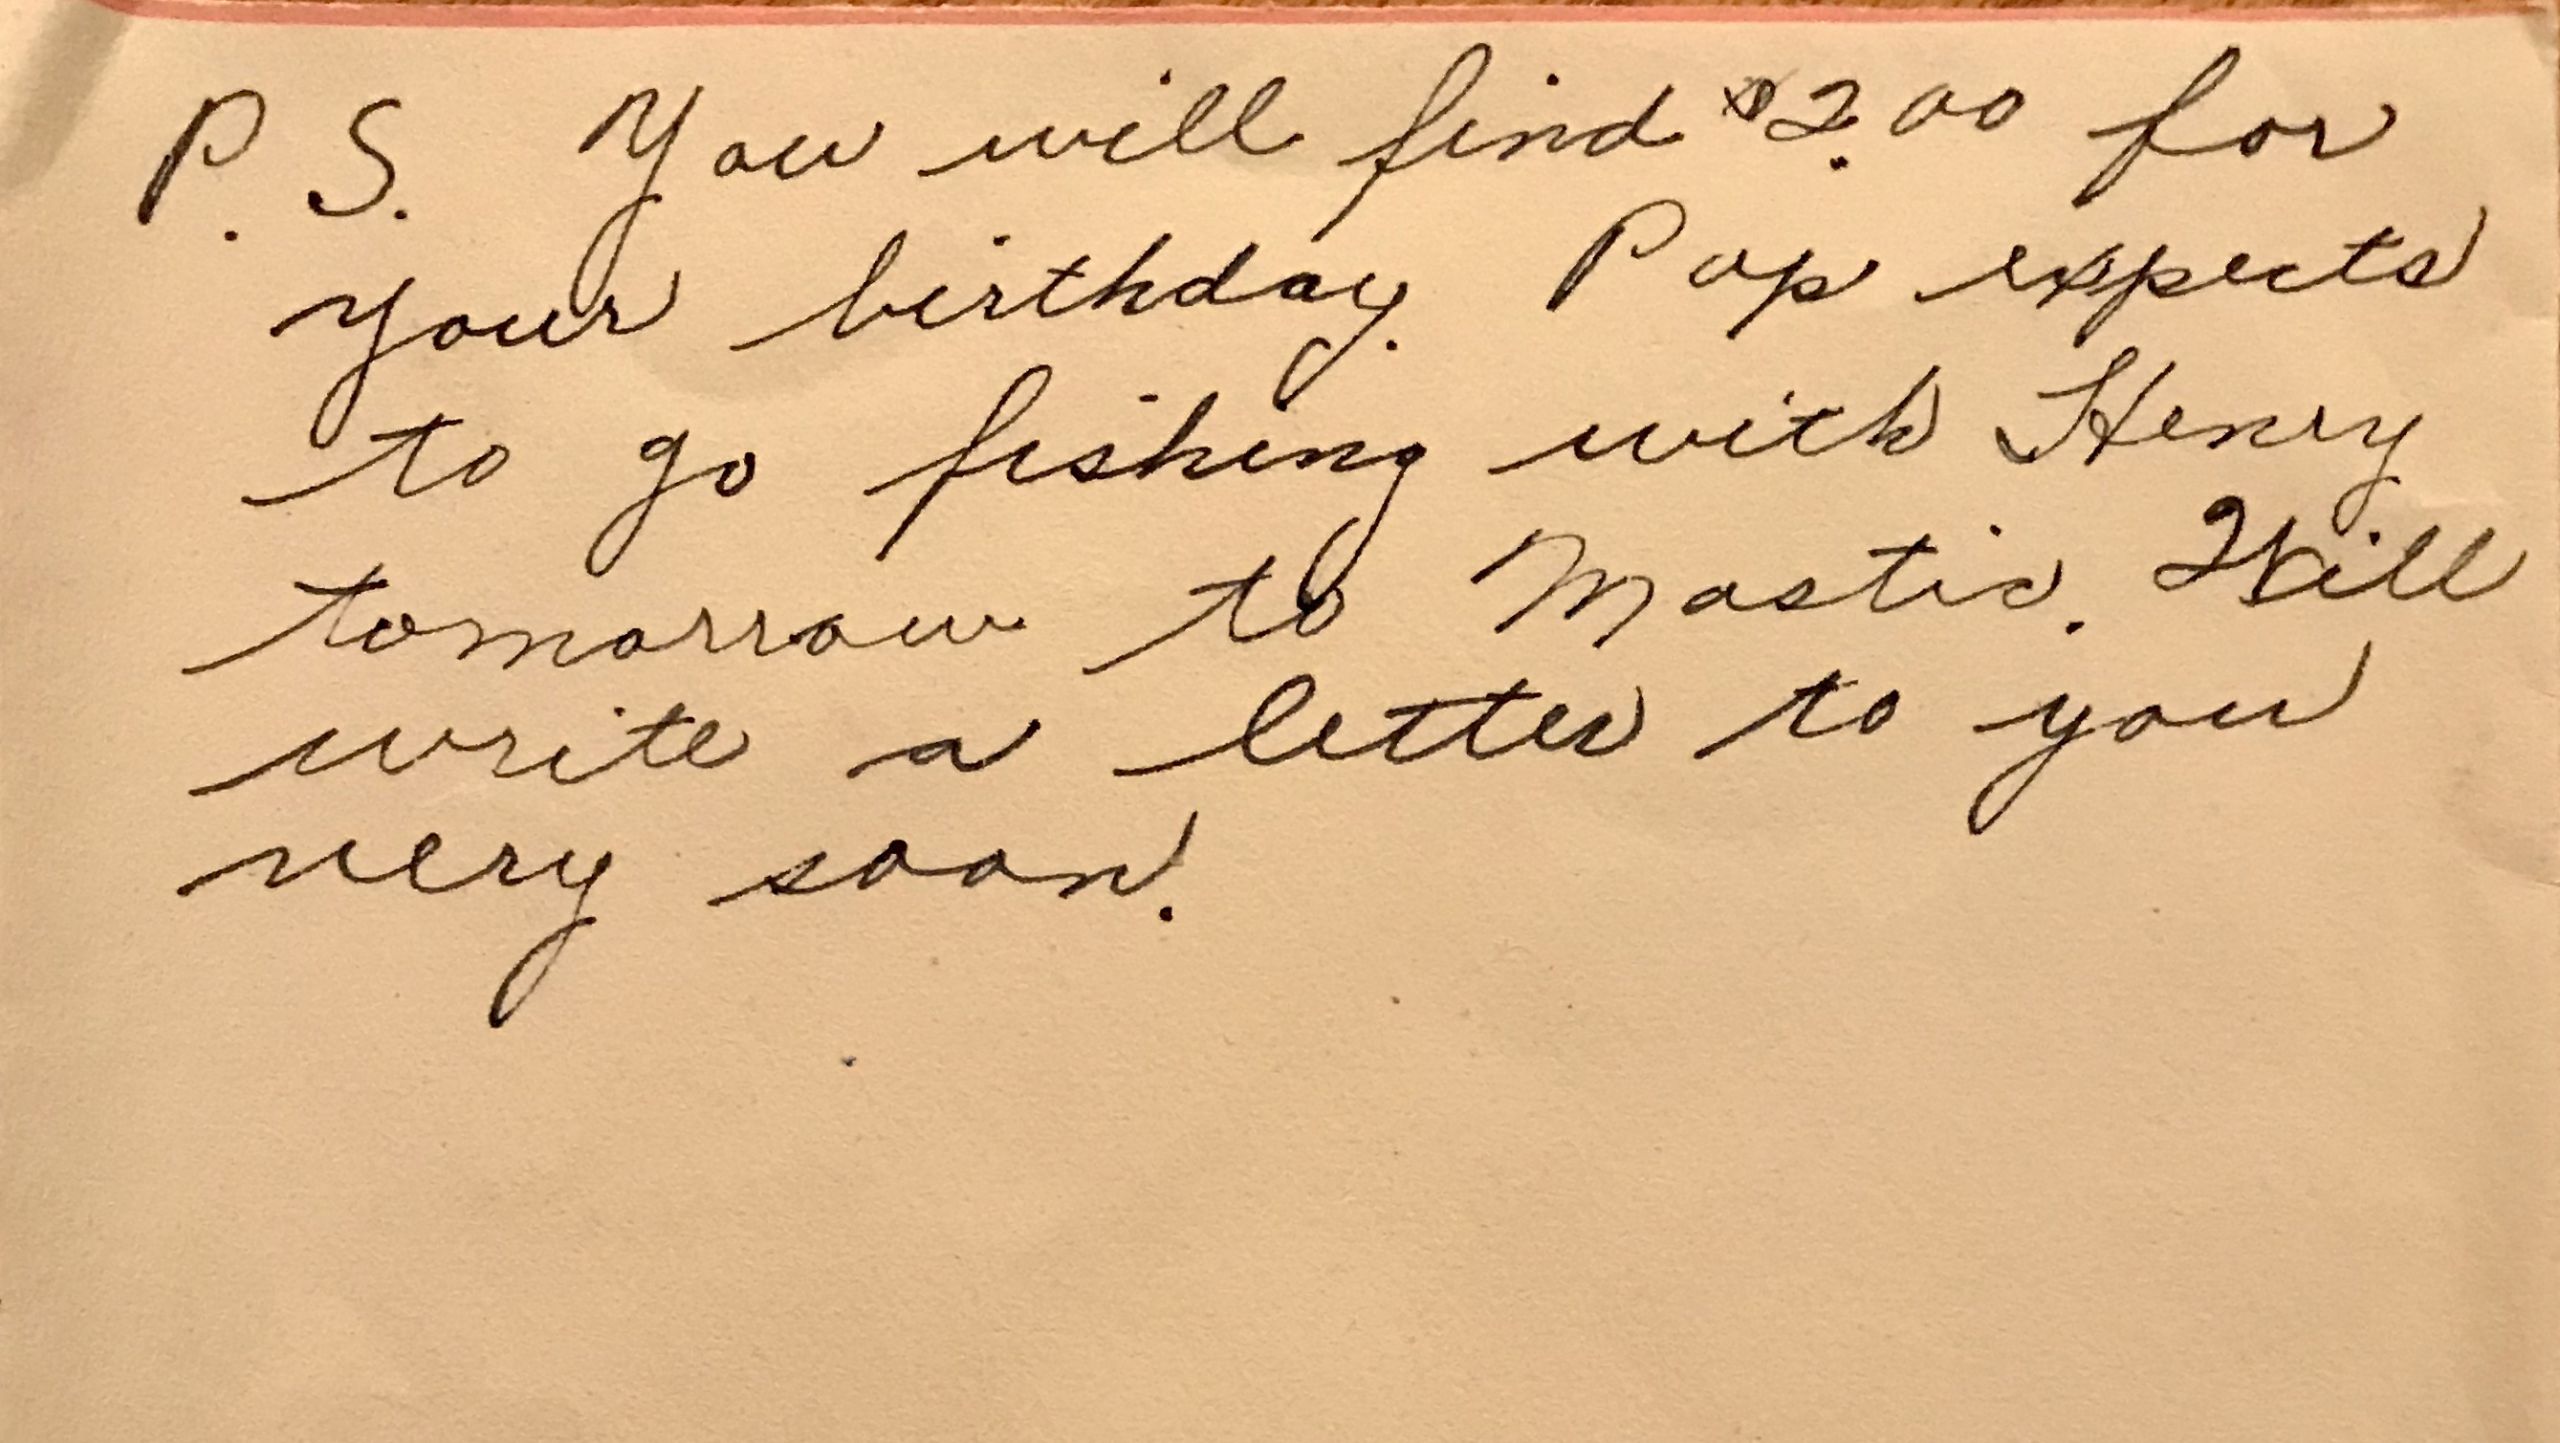 P.S. You will find $2.00 for
your birthday. Pop expects
to go fishing with Henry
tomorrow to Mastic. Will
write a letter to you
very soon.